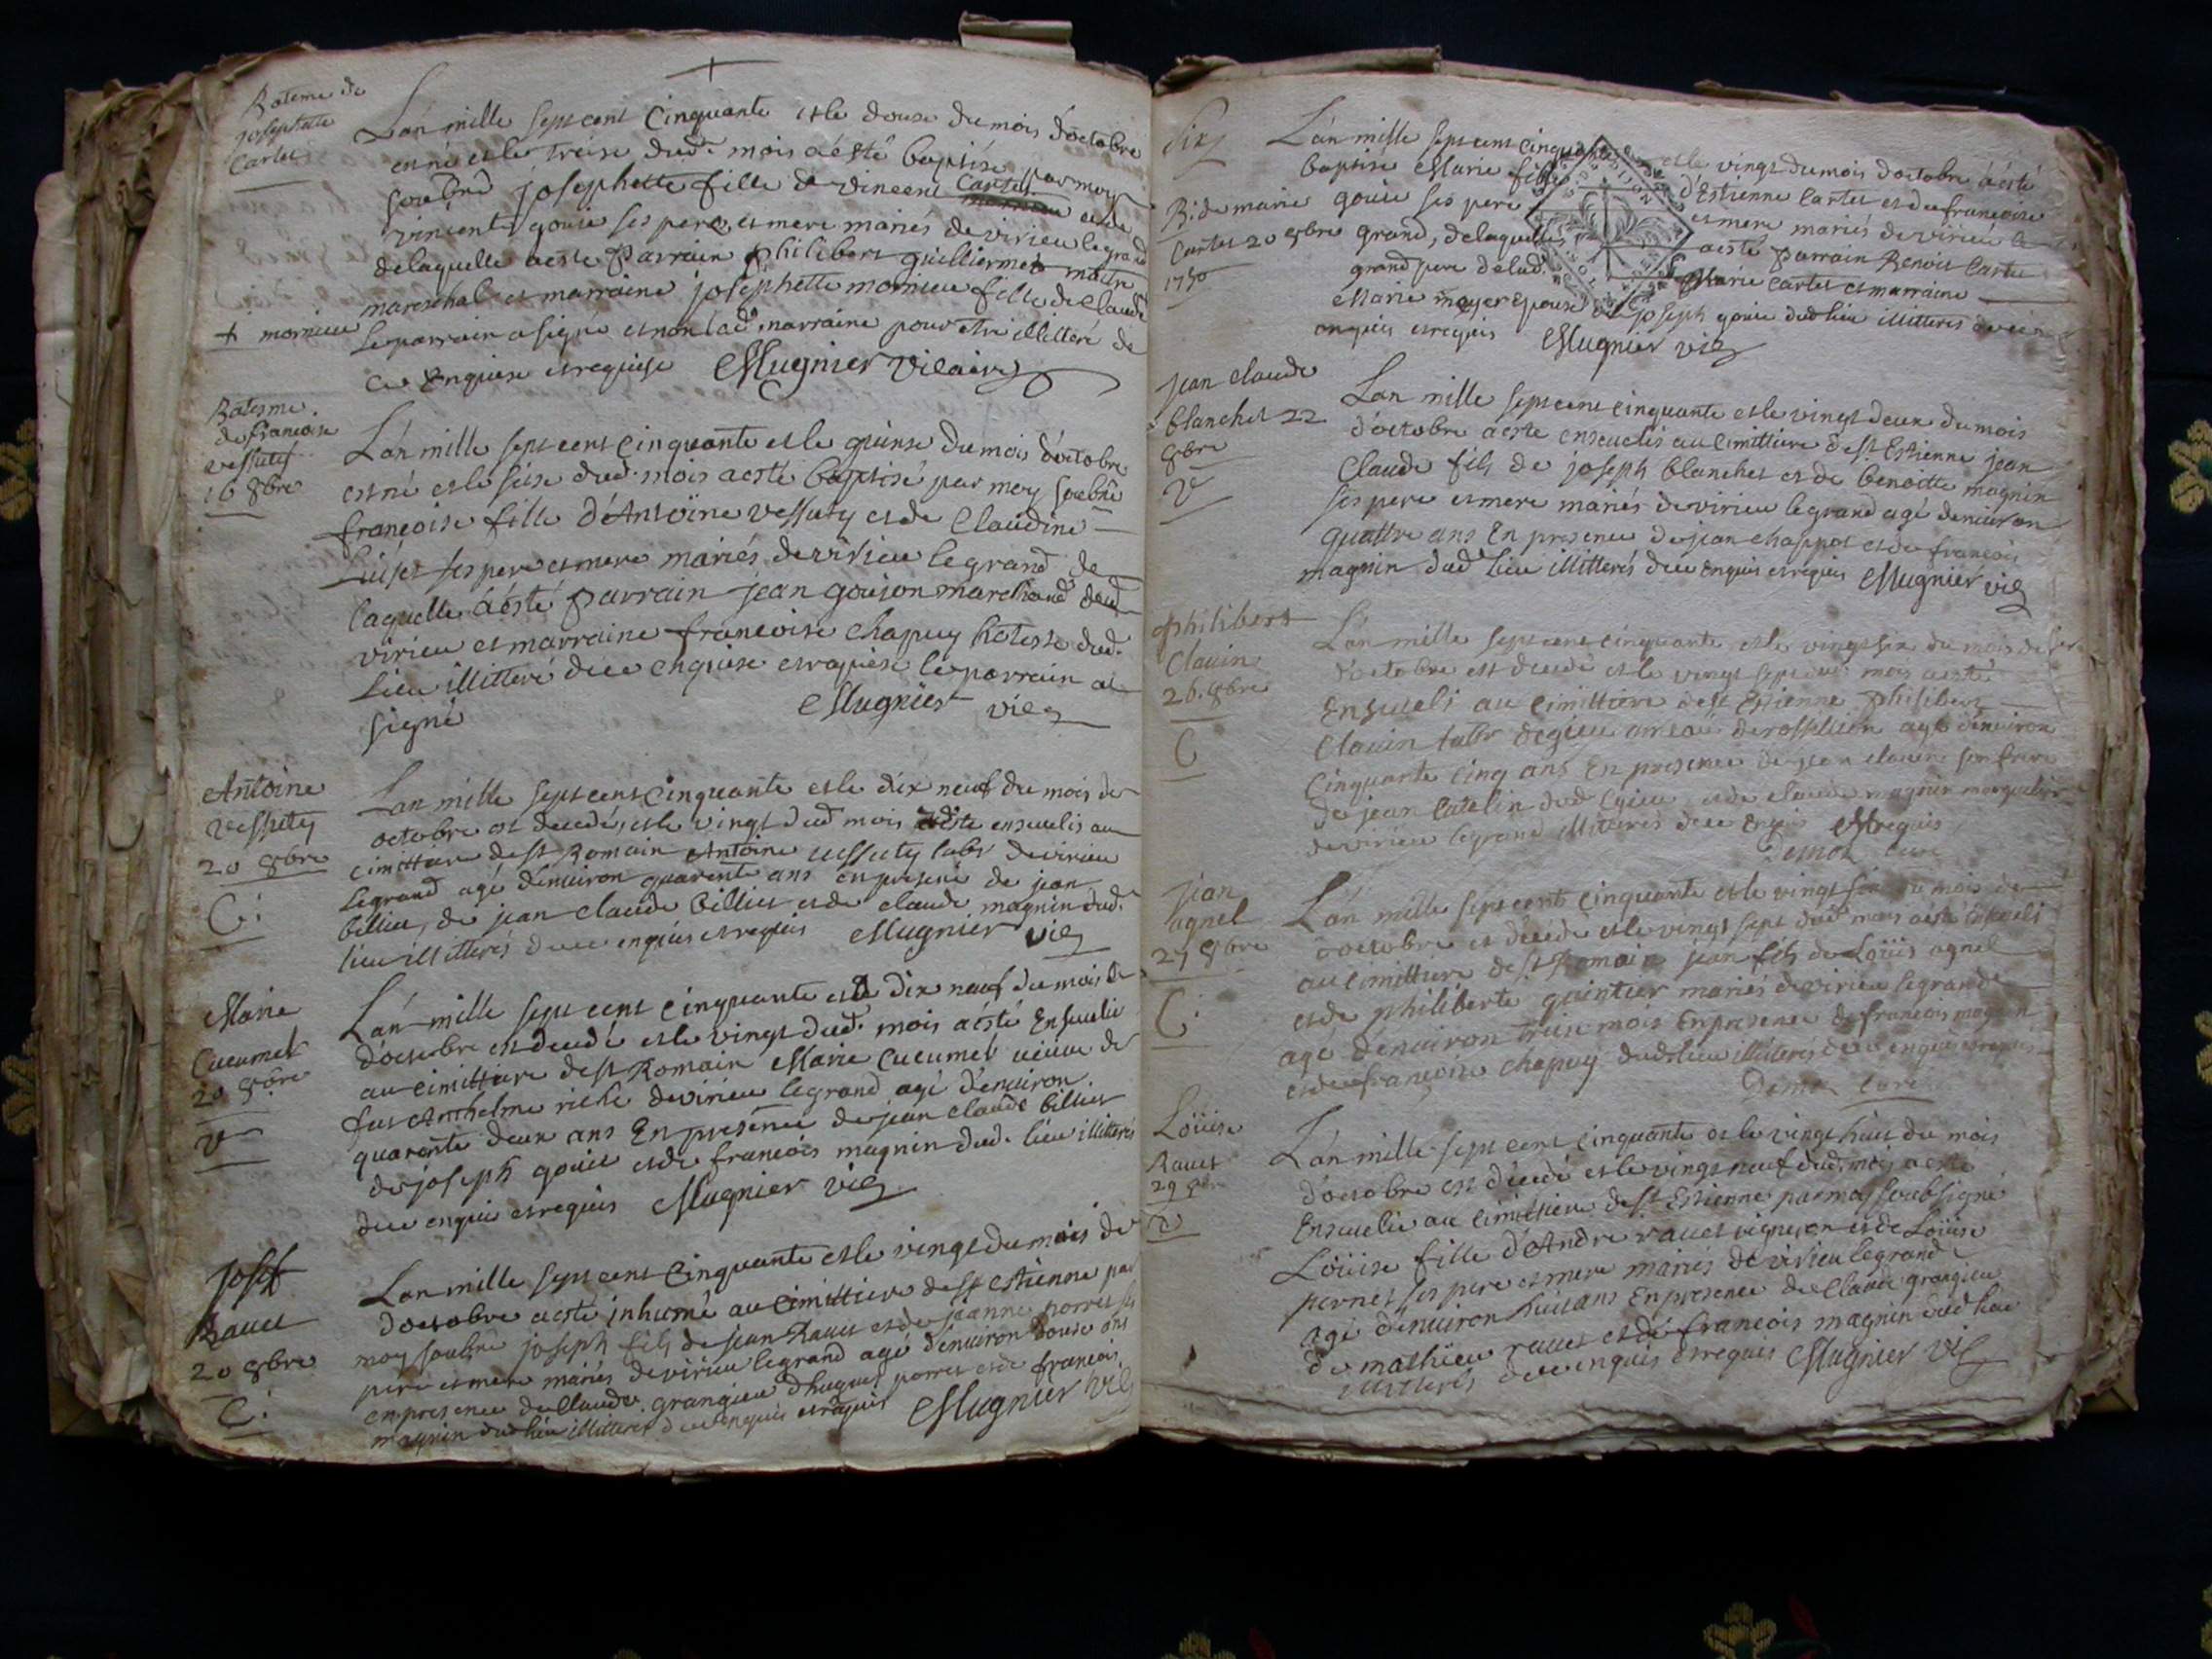 Bateme de
josephette
Cartet
L'an mille sept cent Cinquante et le douse du mois d'octobre
est né et le treise dud. mois a esté baptisé par moy
soubné josephette fille de vincent Cartet et de
vincente gouie ses pere et mere mariés de virieu le grand
de laquelle a esté parrain philibert guilliermet maitre
mareschal et marraine josephette mornieu fille de Claude
+ mornieu
le parrain a signé et non lad. marraine pour etre illitteré de
ce Enquise et requise Mugnier vicaire
Batesme
de francoise
vessuty
16 8bre
L'an mille sept cent Cinquante et le quinse du mois d'octobre
est né et le seise dud. mois a esté baptisé par moy soubné
françoise fille d'Antoine vessuty et de Claudine
ses pere et mere mariés de virieu le grand de
laquelle a esté parrain jean goujon marchand dud.
virieu et marraine francoise chapuy hotesse dud.
Lieu illitteré de ce enquise et requise le parrain a
signé Mugnier vic
Antoine
vessuty
20 8bre
C.
L'an mille sept cent Cinquante et le dix neuf du mois de
octobre est decedé, et le vingt dud mois a esté ensevelis au
cimittiere de st Romain Antoine vessuty labr de virieu
legrand agé d'environ quarente ans en presence de jean
billiet, de jean claude billiet et de claude magnin dud.
lieu illitterés de ce enquis et requis Mugnier vic
Marie
Cucumet
20 8bre
V
L'an mille sept cent Cinquante et le dix neuf du mois de
d'octobre est decedé et le vingt dud. mois a esté Ensevelie
au cimittiere de st Romain Marie Cucumet veuve de
fut Anthelme riche de virieu legrand agé d'environ
quarente deux ans En presence de jean claude billiet
de joseph gouie et de francois magnin dud. lieu illitterés
de ce enquis et requis Mugnier vic
Josef
Ravet
20 8bre
C.
L'an mille sept cent Cinquante et le vingt du mois de
d'octobre a esté inhumé au Cimittiere de st Estienne par
moy soubné joseph fils de jean Ravet et de jeanne porret ses
pere et mere mariés de virieu legrand agé d'environ douse ans
en presence de Claude grangieu d'hugues porret et de francois
magnin dud lieu illitterés de ce enquis et requis Mugnier vic
Six
L'an mille sept cent cinquante et le vingt du mois d'octobre a esté
baptisé Marie fille d'Estienne Cartet et de francoise
B. de marie
gouie ses pere et mere mariés de virieu le
Cartet 20 8bre
grand, de laquelle a esté parrain Benoit Cartet
1750
grand pere de lad. Marie Cartet et marraine
Marie moyer epouse de joseph gouie dud lieu illitterés de ce
enquis et requis Mugnier vic
Jean Claude
blanchet 22
8bre
V
L'an mille sept cent cinquante et le vingt deux du mois
d'octobre a esté ensevelis au Cimittiere de st Estienne jean
Claude fils de joseph blanchet et de benoitte magnin
ses pere et mere mariés de virieu legrand agé d'environ
quattre ans En presence de jean chappot et de francois
magnin dud lieu illitterés de ce enquis et requis Mugnier vic
philibert
Clavin
26. 8bre
C
L'an mille sept cent cinquante et le vingt six du mois de
d'octobre est decedé et le vingt sept dud mois a esté
Enseveli au cimittiere de st Estienne philibert
Clavin labr agé d'environ
Cinquante cinq ans En presence de jean clavin son frere
de jean Catelin dud et de claude magnin marguillier
de virieu legrand illitterés de ce Enquis et requis
Demoz curé
Jean
agnel
27 8bre
C.
L'an mille sept cent Cinquante et le vingt six du mois de
d'octobre est decedé et le vingt sept dud mois a esté Enseveli
au cimittiere de st Romain jean fils de Loüis agnel
et de philiberte quintier mariés de virieu legrand
agé d'environ treise mois En presence de francois magnin
et de francoise chapuy dud lieu illitterés de ce enquis et requis
Demoz Curé
Loüise
Ravet
29 8bre
V
L'an mille sept cent Cinquante et le vingt huit du mois
d'octobre est decedé et le vingt neuf dud. mois a esté
Ensevelie au cimittiere de st Estienne par moy soubsigné
Loüise fille d'André ravet vigneron et de Loüise
pernet ses pere et mere mariés de virieu legrand
agé d'environ huit ans En presence de Claude grangieu
de mathieu ravet et de francois magnin dud lieu
illitterés de ce enquis et requis Mugnier vic